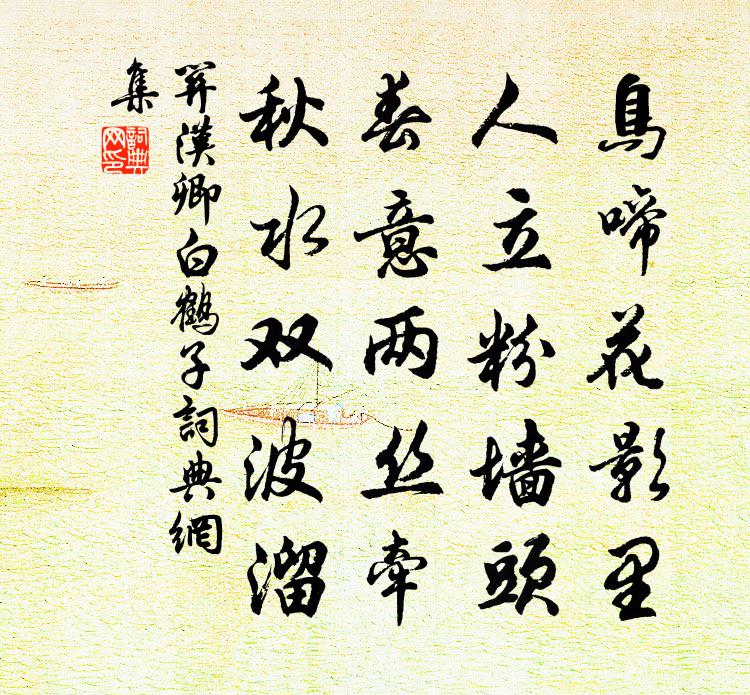 鳥啼花影里
人立粉墙頭
春意两丝牵
秋水双波溜
關漢卿白鶴子詞典網
集
詞典
网印